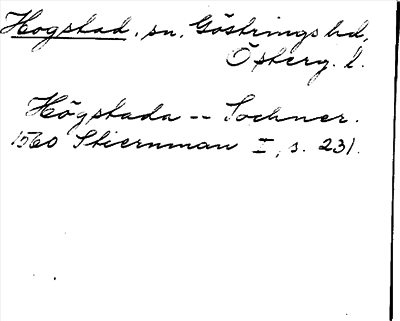 Hogstad, sn, Göstrings hd,
Österg. l.
Högstada -- Sochner.
1560 Stiernman I, s. 231.